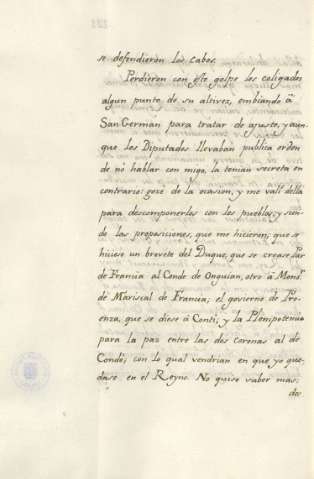 se defendieron los Cabos.
Perdieron con este golpe los coligados
algun punto de su altivez, embiando â
San German para tratar de ajuste, y aun
que los Diputados llevaban publica orden
de nò hablar con migo, la tenian secreta en
contrario: gozè de la ocasion, y me valì della
para descomponerles con los pueblos; y sien-
do las proposiciones, que me hicieron; que se
hiciese un brevete del Duque, que se crease Par
de Francia al Conde de Onguian, otro â Mons.r
de Mariscal de Francia; el govierno de Pro-
enza, que se diese â Conti; y la Plenipotencia
para la paz entre las dos coronas al de
Condè; con lo qual vendrian en que yo que-
dase en el Reyno. No quise saber mas;